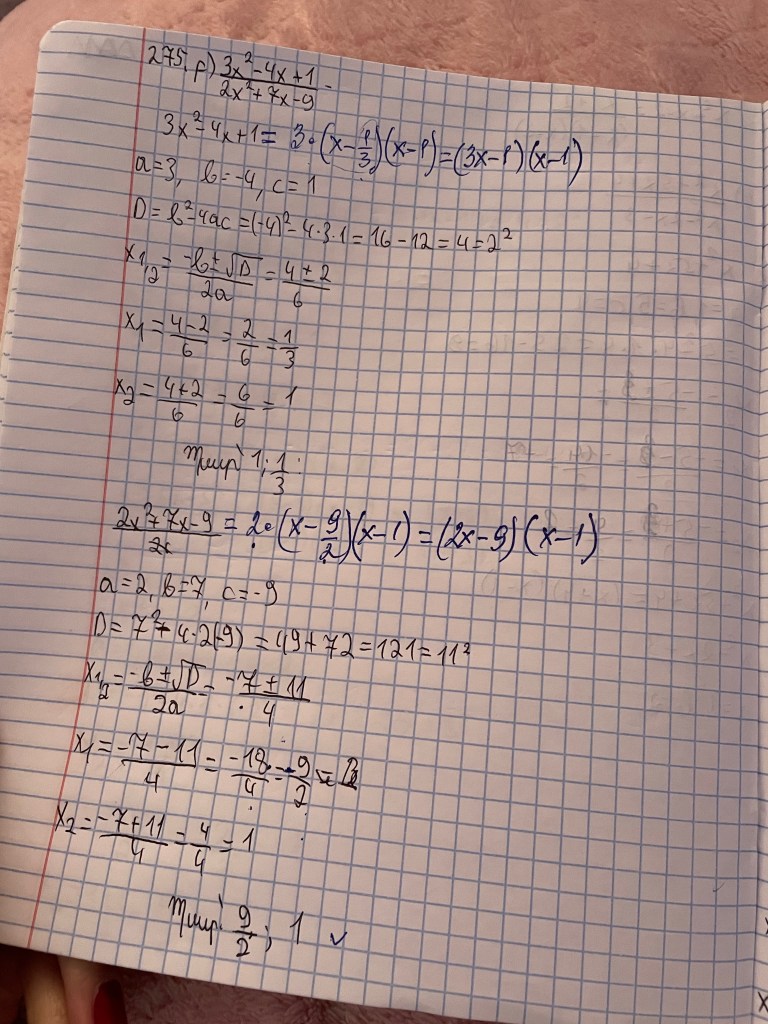 275. բ) \frac{3x²-4x+1}{2x²+7x-9} -
3x²-4x+1 = 3·(x-\frac{1}{3})(x-1)=(3x-1)(x-1)
a=3, b=-4, c=1
D=b²-4ac=(-4)²-4·3·1=16-12=4=2²
x₁,₂=\frac{-b±√D}{2a}=\frac{4±2}{6}
x₁=\frac{4-2}{6}=\frac{2}{6}=\frac{1}{3}
x₂=\frac{4+2}{6}=\frac{6}{6}=1
1; \frac{1}{3}:
\frac{2x²+7x-9}{2x} = 2·(x-\frac{9}{2})(x-1)=(2x-9)(x-1)
a=2, b=7, c=-9
D=7²+4·2(-9)=49+72=121=11²
x₁,₂=\frac{-b±√D}{2a}=\frac{-7±11}{4}
x₁=\frac{-7-11}{4}=\frac{-18}{4}=-\frac{9}{2}=
x₂=\frac{-7+11}{4}=\frac{4}{4}=1
\frac{9}{2}; 1 ✓